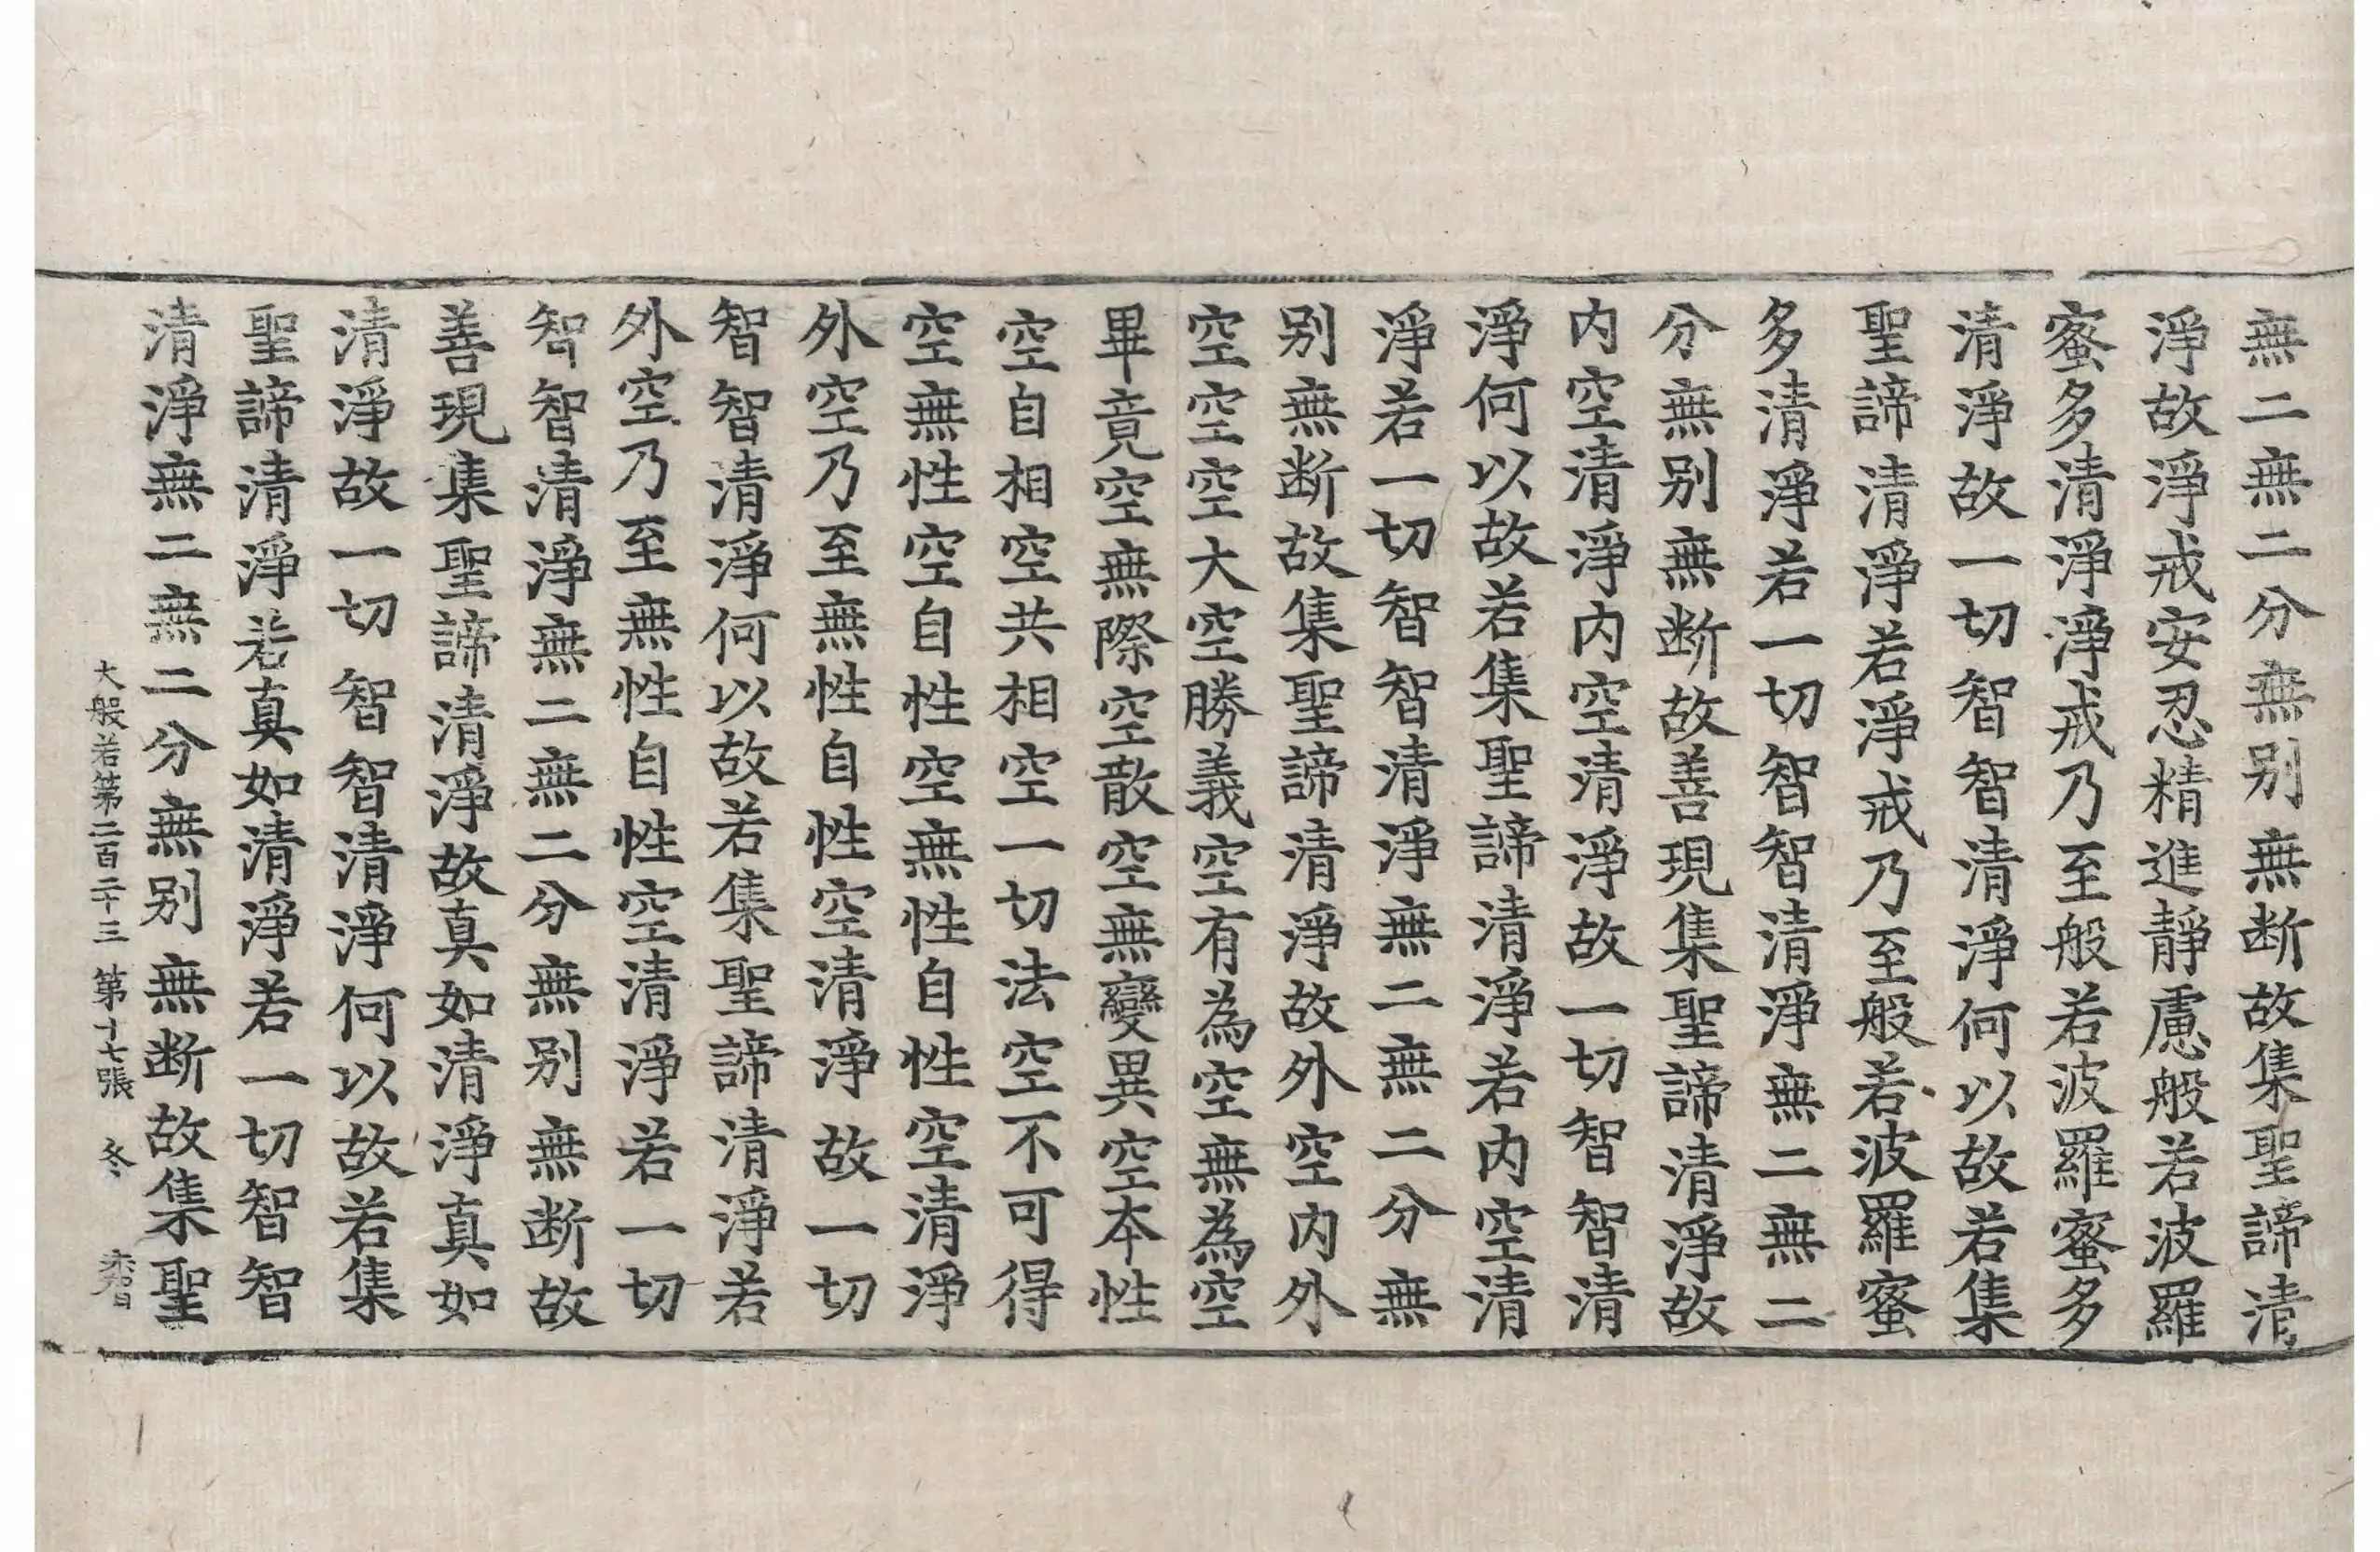 無二無二分無別無断故集聖諦清
淨故淨戒安忍精進靜慮般若波羅
蜜多清淨淨戒乃至般若波羅蜜多
清淨故一切智智清淨何以故若集
聖諦清淨若淨戒乃至般若波羅蜜
多清淨若一切智智清淨無二無二
分無別無断故善現集聖諦清淨故
內空清淨內空清淨故一切智智清
淨何以故若集聖諦清淨若內空清
淨若一切智智清淨無二無二分無
別無断故集聖諦清淨故外空內外
空空空大空勝義空有為空無為空
畢竟空無際空散空無變異空本性
空自相空共相空一切法空不可得
空無性空自性空無性自性空清淨
外空乃至無性自性空清淨故一切
智智清淨何以故若集聖諦清淨若
外空乃至無性自性空清淨若一切
智智清淨無二無二分無別無断故
善現集聖諦清淨故真如清淨真如
清淨故一切智智清淨何以故若集
聖諦清淨若真如清淨若一切智智
清淨無二無二分無別無断故集聖
大般若第二百二十三 第十七張 冬